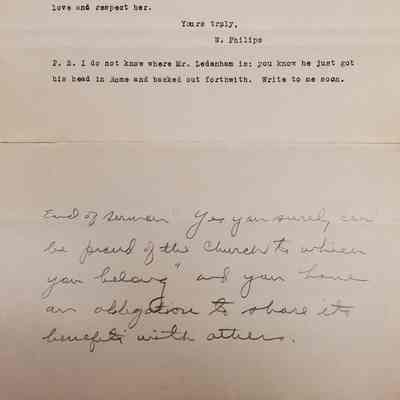 love and respect her.
Yours trply,
W. Philips
P. S. I do not know where Mr. Ledenham is: you know he just got
his head in Rome and backed out forthwith. Write to me soon.
End of sermon "Yes you surely can
be proud of the Church to which
you belong" and you have
an obligation to share its
benefits with others.